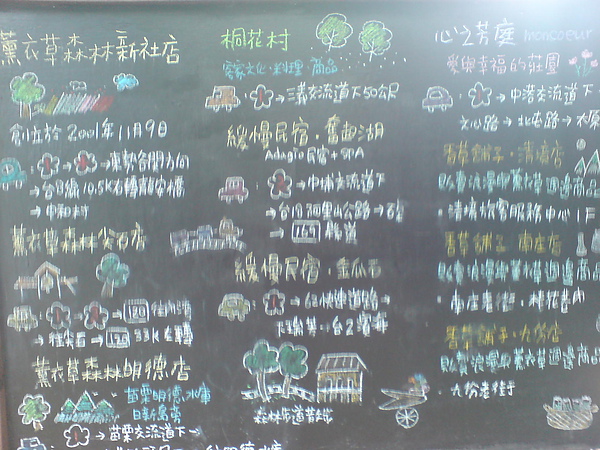 薰衣草森林新社店
創立於 2001年11月9日
→東勢谷關方向
→台8線 10.5K右轉
→中和村
薰衣草森林尖石店
→ 120 往內灣
→往尖石→ 33K右轉
薰衣草森林明德店
苗栗明德水庫
日新島旁
→苗栗交流道下→
桐花村
客家文化·料理 商品
→三義交流道下50公尺
緩慢民宿·奮起湖
Adagio民宿+SPA
→中埔交流道下
→台18阿里山公路→石
→ 169 縣道
緩慢民宿·金瓜石
→62快速道路→
下瑞芳→台2濱海
森林布道普救站
心之芳庭 moncoeur
愛與幸福的莊園
→中港交流道下
文心路→北屯路→
香草舖子·清境店
販賣浪漫與薰衣草週邊商品
·清境旅客服務中心 1F
香草舖子·南庄店
販賣浪漫與薰衣草週邊商品
·南庄老街·桂花巷內
香草舖子·九份店
販賣浪漫與薰衣草週邊商品
·九份老街